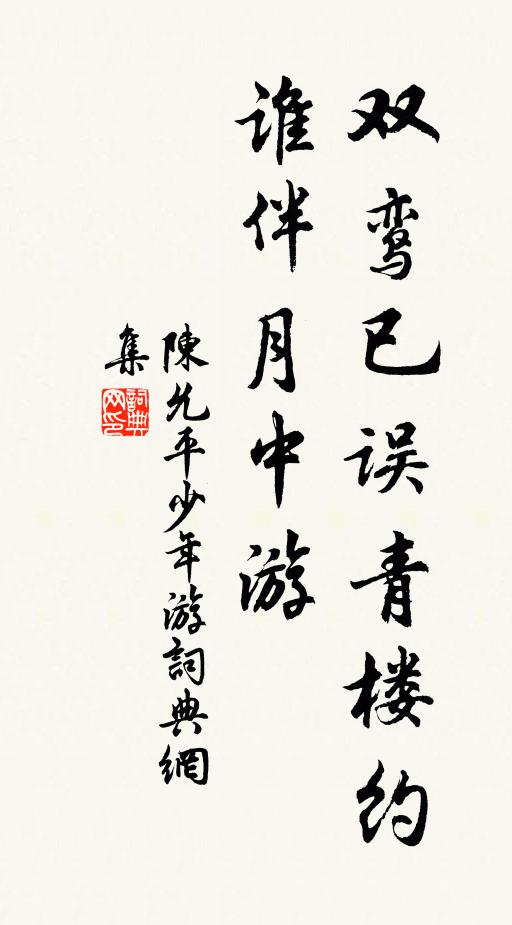 双鸾已误青楼约
谁伴月中游
陳允平少年游詞典網
集
詞典網印